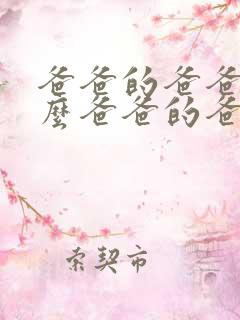 爸爸的爸爸
麼爸爸的爸
索契市